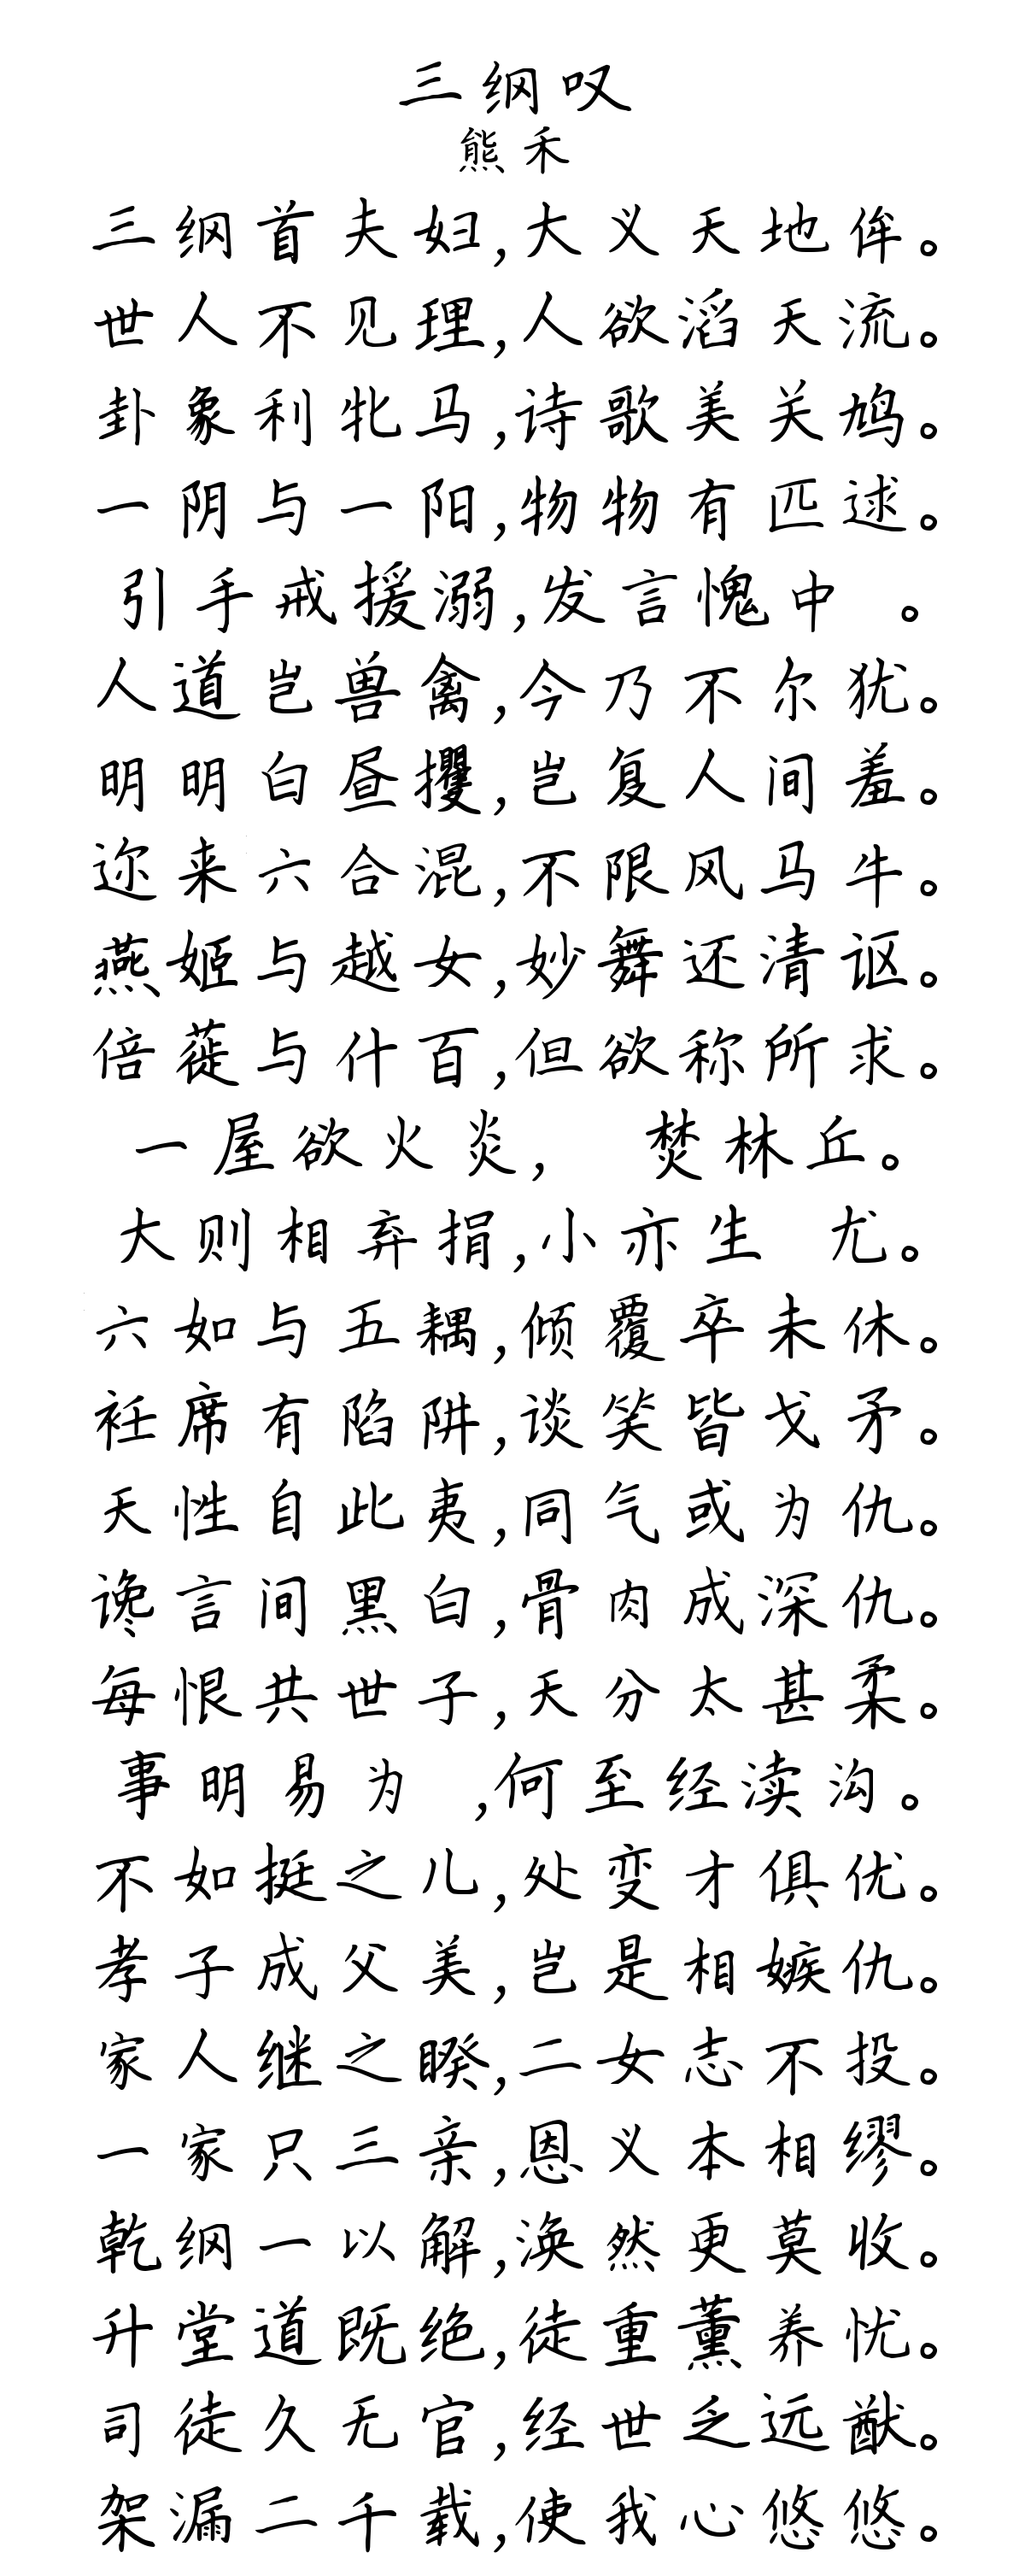 三纲叹
熊禾
三纲首夫妇,大义天地侔。
世人不见理,人欲滔天流。
卦象利牝马,诗歌美关鸠。
一阴与一阳,物物有匹逑。
引手戒援溺,发言愧中 。
人道岂兽禽,今乃不尔犹。
明明白昼攫,岂复人间羞。
迩来六合混,不限风马牛。
燕姬与越女,妙舞还清讴。
倍蓰与什百,但欲称所求。
一屋欲火炎, 焚林丘。
大则相弃捐,小亦生 尤。
六如与五耦,倾覆卒未休。
衽席有陷阱,谈笑皆戈矛。
天性自此夷,同气或为仇。
谗言间黑白,骨肉成深仇。
每恨共世子,天分太甚柔。
事明易为 ,何至经渎沟。
不如挺之儿,处变才俱优。
孝子成父美,岂是相嫉仇。
家人继之睽,二女志不投。
一家只三亲,恩义本相缪。
乾纲一以解,涣然更莫收。
升堂道既绝,徒重薰养忧。
司徒久无官,经世乏远猷。
架漏二千载,使我心悠悠。